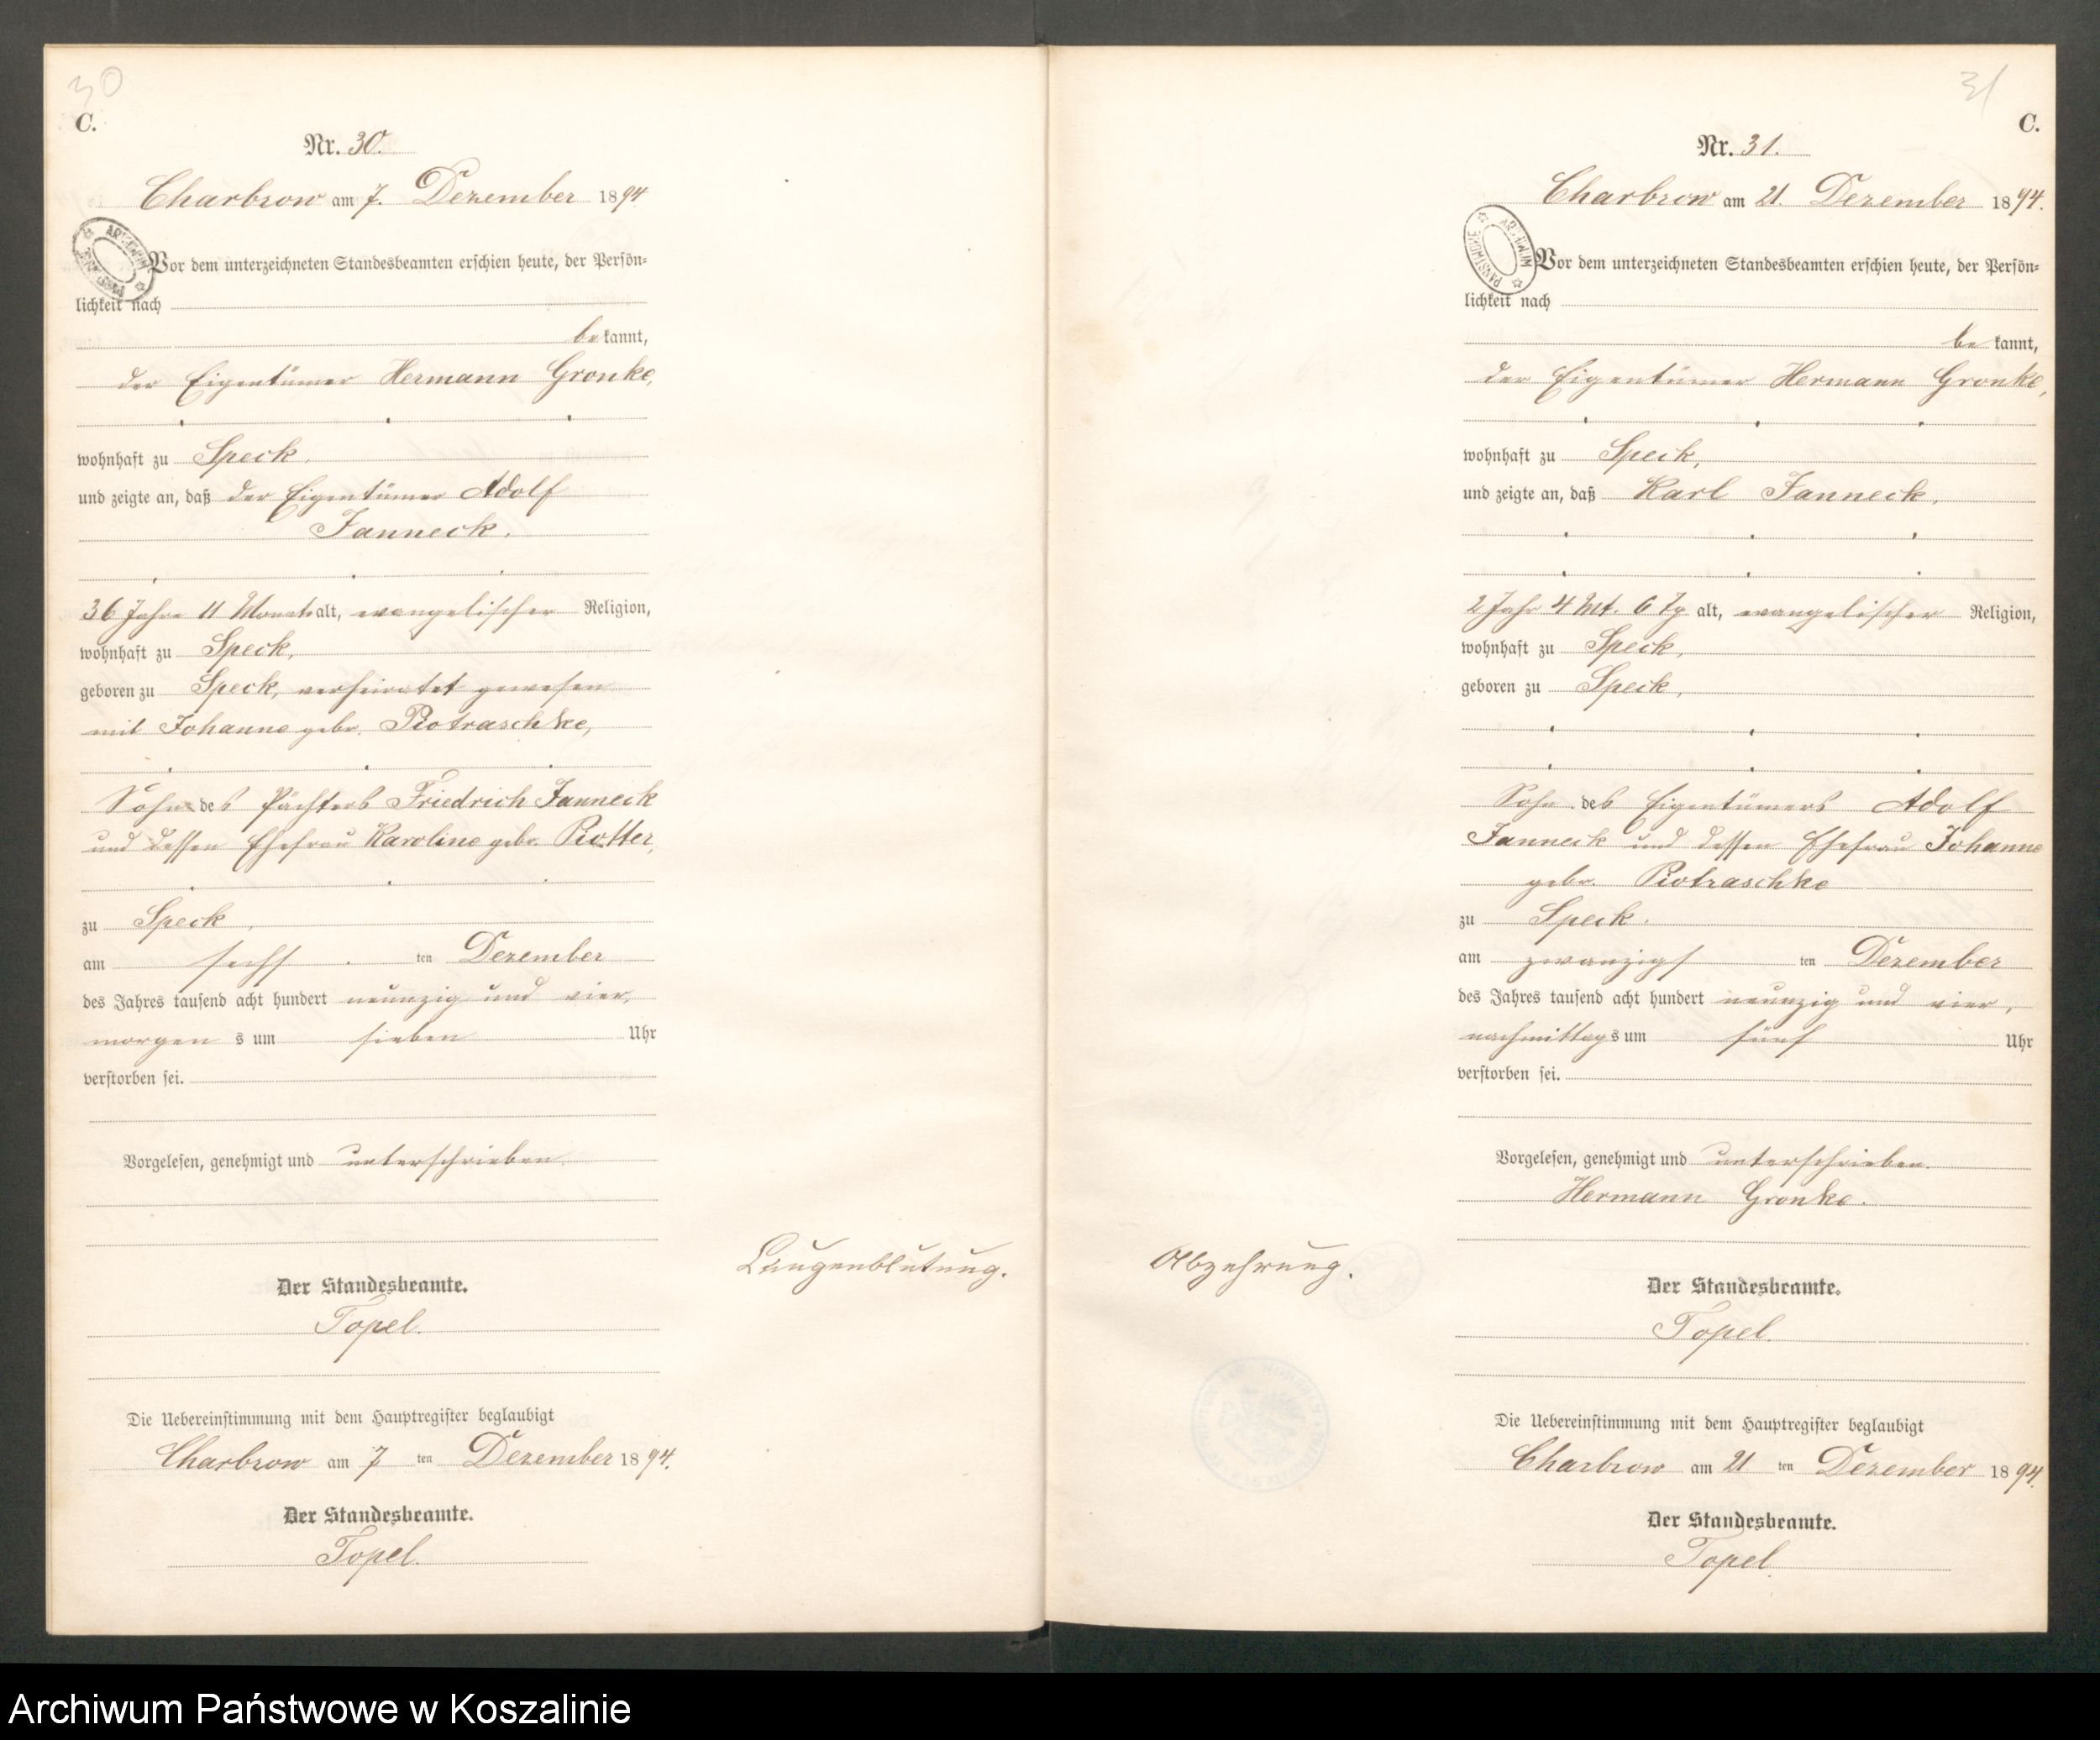 30
C.
Nr. 30.
Charbrow am 7. Dezember 1894
ARCHIWUM PAŃSTWOWE
Vor dem unterzeichneten Standesbeamten erschien heute, der Persön-
lichkeit nach
bekannt,
der Eigentümer Hermann Gronke,
wohnhaft zu Speck,
und zeigte an, daß der Eigentümer Adolf
Janneck,
36 Jahre 11 Monate alt, evangelischer Religion,
wohnhaft zu Speck,
geboren zu Speck, verheiratet gewesen
mit Johanne gebr. Piotraschke,
Sohn des Pächters Friedrich Janneck
und dessen Ehefrau Karoline gebr. Piotter,
zu Speck,
am sechsten Dezember
des Jahres tausend acht hundert neunzig und vier,
morgens um sieben Uhr
verstorben sei.
Vorgelesen, genehmigt und unterschrieben.
Lungenblutung.
Der Standesbeamte.
Topel.
Die Uebereinstimmung mit dem Hauptregister beglaubigt
Charbrow am 7 ten Dezember 1894.
Der Standesbeamte.
Topel.
31
C.
Nr. 31.
Charbrow am 21. Dezember 1894.
ARCHIWUM PAŃSTWOWE
Vor dem unterzeichneten Standesbeamten erschien heute, der Persön-
lichkeit nach
bekannt,
der Eigentümer Hermann Gronke,
wohnhaft zu Speck,
und zeigte an, daß Karl Janneck,
2 Jahr 4 Mt. 6 Tg alt, evangelischer Religion,
wohnhaft zu Speck,
geboren zu Speck,
Sohn des Eigentümers Adolf
Janneck und dessen Ehefrau Johanne
gebr. Piotraschke
zu Speck.
am zwanzigsten Dezember
des Jahres tausend acht hundert neunzig und vier,
nachmittags um fünf Uhr
verstorben sei.
Vorgelesen, genehmigt und unterschrieben.
Hermann Gronke.
Abzehrung.
Der Standesbeamte.
Topel.
Die Uebereinstimmung mit dem Hauptregister beglaubigt
Charbrow am 21 ten Dezember 1894.
Der Standesbeamte.
Topel.
Archiwum Państwowe w Koszalinie